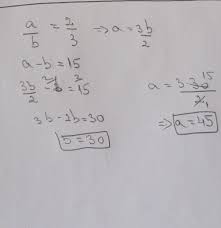 a/b = 2/3 ⇒ a = 3b/2
a-b = 15
3b/2 - b = 15
3b - 2b = 30
b = 30
a = 3·30 15/2 1
⇒ a = 45